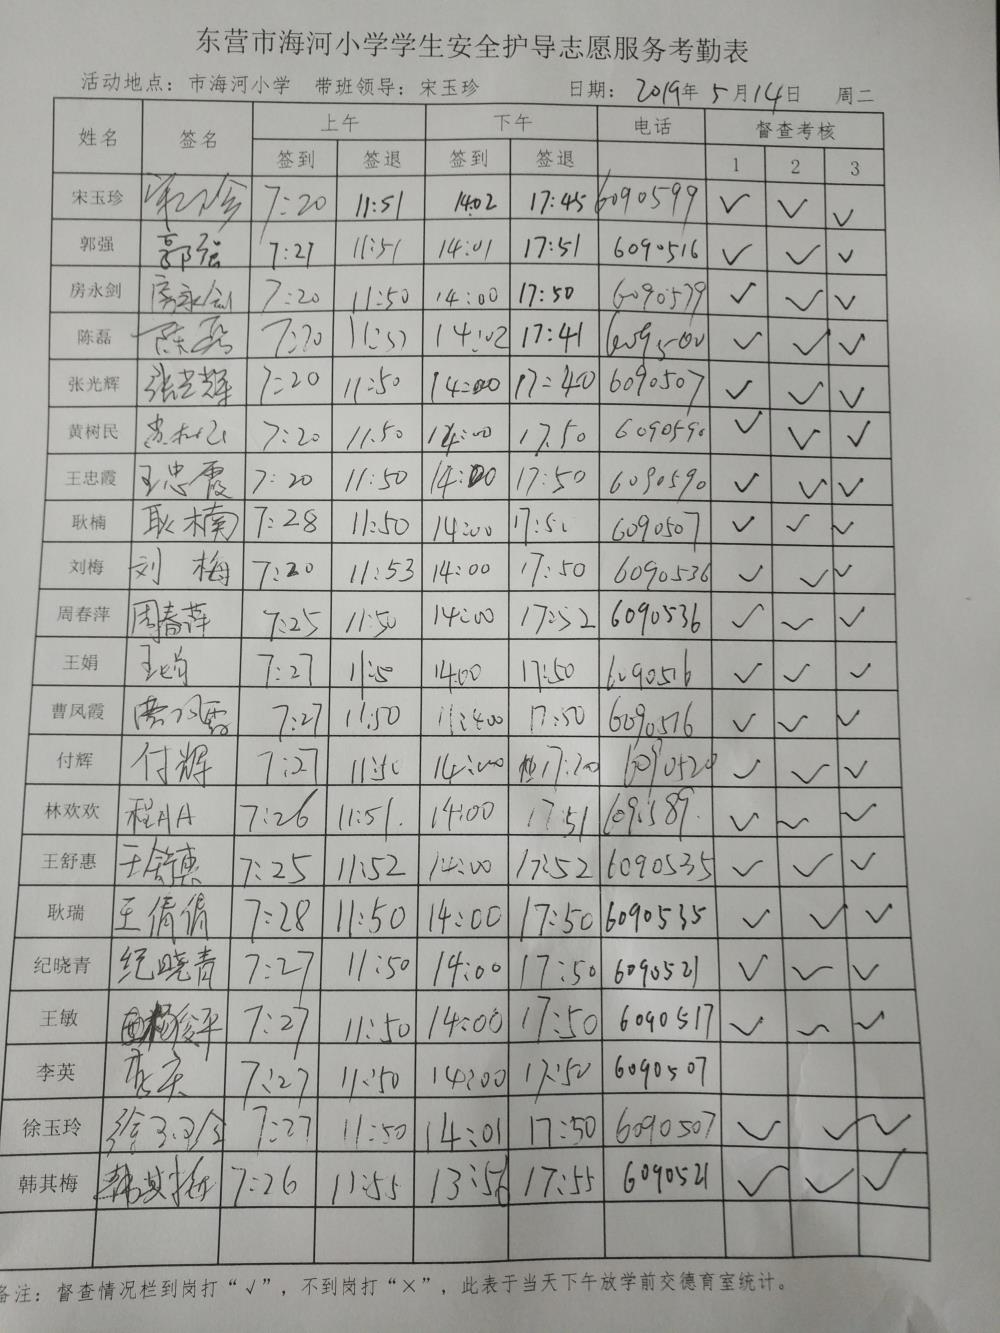 东营市海河小学学生安全护导志愿服务考勤表
活动地点：市海河小学 带班领导：宋玉珍 日期：2019年5月14日 周二
姓名 签名 上午 下午 电话 督查考核
签到 签退 签到 签退 1 2 3
宋玉珍 7:20 11:51 14:02 17:45 6090599 ✓ ✓ ✓
郭强 郭强 7:21 11:51 14:01 17:51 6090516 ✓ ✓ ✓
房永剑 房永剑 7:20 11:50 14:00 17:50 6090579 ✓ ✓ ✓
陈磊 陈磊 7:20 14:02 17:41 ✓ ✓ ✓
张光辉 张光辉 7:20 11:50 14:00 17:40 6090507 ✓ ✓ ✓
黄树民 7:20 11:50 14:00 17:50 6090590 ✓ ✓ ✓
王忠霞 王忠霞 7:20 11:50 14:00 17:50 6090590 ✓ ✓ ✓
耿楠 耿楠 7:28 11:50 14:00 17:50 6090507 ✓ ✓ ✓
刘梅 刘梅 7:20 11:53 14:00 17:50 6090536 ✓ ✓ ✓
周春萍 周春萍 7:25 11:50 14:00 17:52 6090536 ✓ ✓ ✓
王娟 王娟 7:27 11:50 14:00 17:50 6090516 ✓ ✓ ✓
曹凤霞 曹凤霞 7:27 11:50 17:50 6090516 ✓ ✓ ✓
付辉 付辉 7:27 11:50 14:00 6090520 ✓ ✓ ✓
林欢欢 7:26 11:51. 14:00 17:51 ✓ ✓ ✓
王舒惠 王舒惠 7:25 11:52 14:00 17:52 6090535 ✓ ✓ ✓
耿瑞 王倩倩 7:28 11:50 14:00 17:50 6090535 ✓ ✓ ✓
纪晓青 纪晓青 7:27 11:50 14:00 17:50 6090521 ✓ ✓ ✓
王敏 7:27 11:50 14:00 17:50 6090517 ✓ ✓ ✓
李英 7:27 11:50 14:00 17:50 6090507
徐玉玲 徐玉玲 7:27 11:50 14:01 17:50 6090507 ✓ ✓ ✓
韩其梅 韩其梅 7:26 11:55 13:56 17:55 6090521 ✓ ✓ ✓
备注：督查情况栏到岗打“√”，不到岗打“×”，此表于当天下午放学前交德育室统计。